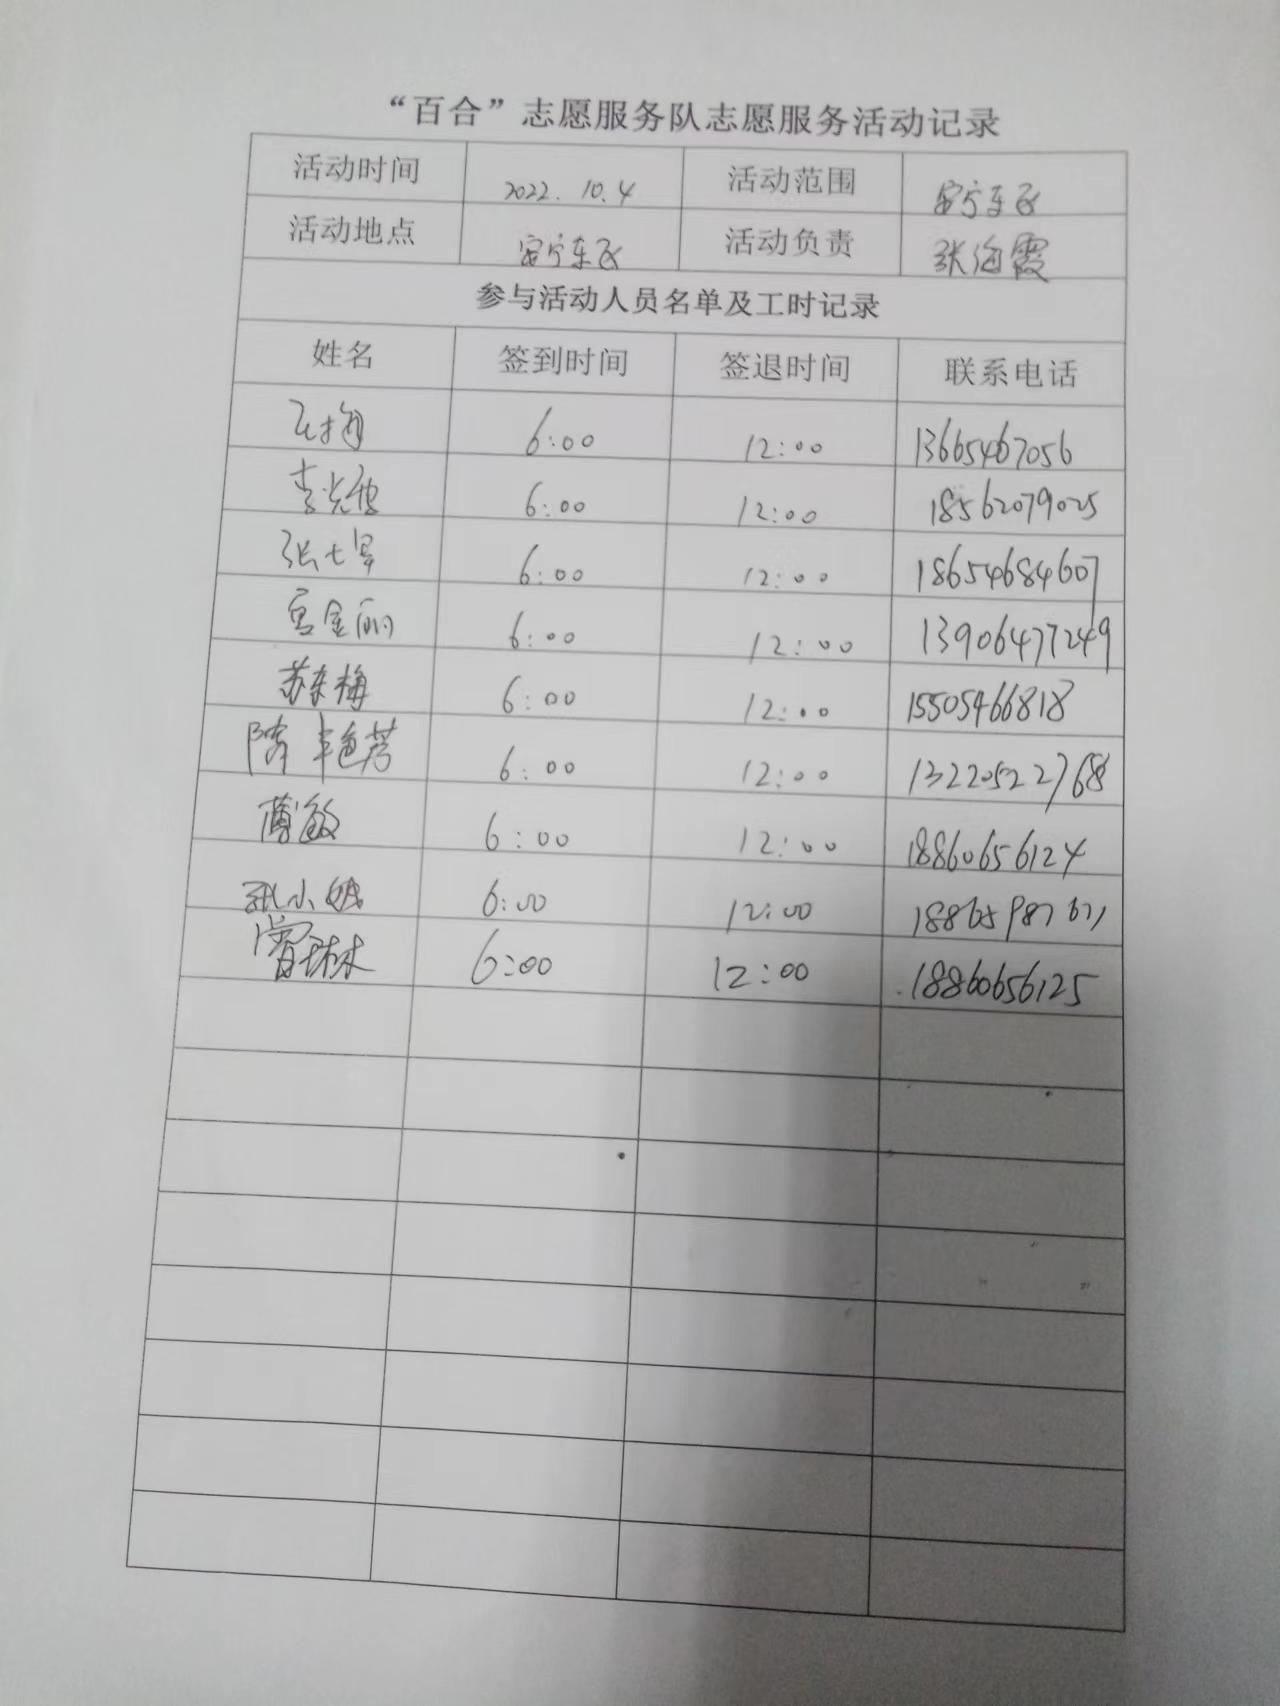 “百合”志愿服务队志愿服务活动记录
活动时间 2022.10.4 活动范围 安宁东区
活动地点 安宁东区 活动负责 张海霞
参与活动人员名单及工时记录
姓名 签到时间 签退时间 联系电话
6:00 12:00 13665467056
6:00 12:00 18562079025
6:00 12:00 18654684607
宫金丽 6:00 12:00 13906477249
苏东梅 6:00 12:00 15505466818
隋艳芳 6:00 12:00 13220522768
薄敏 6:00 12:00 18860656124
6:00 12:00
6:00 12:00 18860656125